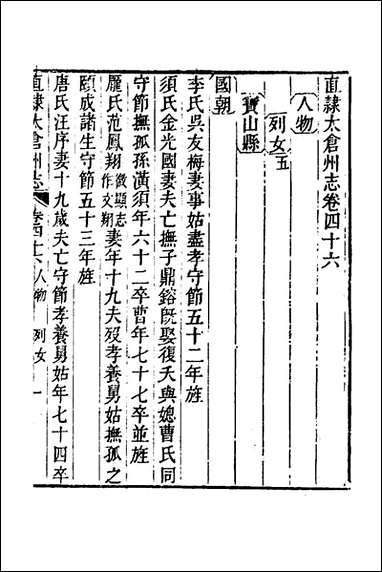 直隸太倉州志卷四十六
人物
列女五
寶山縣
國朝
李氏吳友梅妻事姑盡孝守節五十二年旌
須氏金光國妻夫亡撫子鼎鎔旣娶復夭與媳曹氏同
守節撫孤孫潢須年六十二卒曹年七十七卒並旌
龐氏范鳳翔徵顯志作文翔妻年十九夫歿孝養舅姑撫孤之
頤成諸生守節五十三年旌
唐氏汪序妻十九歲夫亡守節孝養舅姑年七十四卒
直隸太倉州志 卷四十六 人物 列女 一